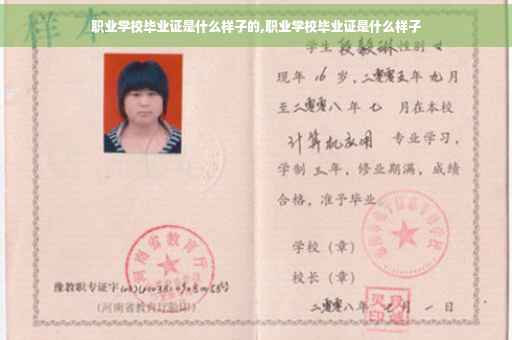 职业学校毕业证是什么样子的,职业学校毕业证是什么样子
样本
学生 段毅琳 性别 女
现年 16 岁，二零零五年 九月
至二零零八年 七 月在本校
计算机应用 专业学习，
学制 三 年，修业期满，成绩
合格，准予毕业
学校（章）
校长（章）
二零零八年 七 月 一 日
河南省教育厅
豫教职专证字
(河南省教育厅验印)